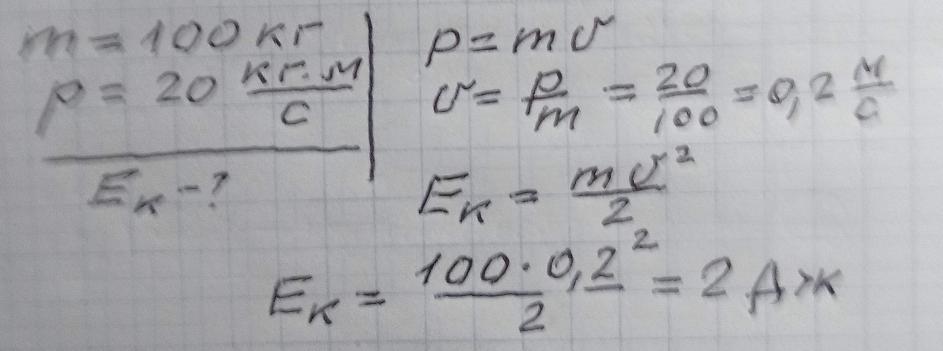 m = 100 кг
p = 20 кг·м/с
Eк - ?
p = mv
v = p/m = 20/100 = 0,2 м/с
Eк = mv²/2
Eк = 100·0,2²/2 = 2 Дж